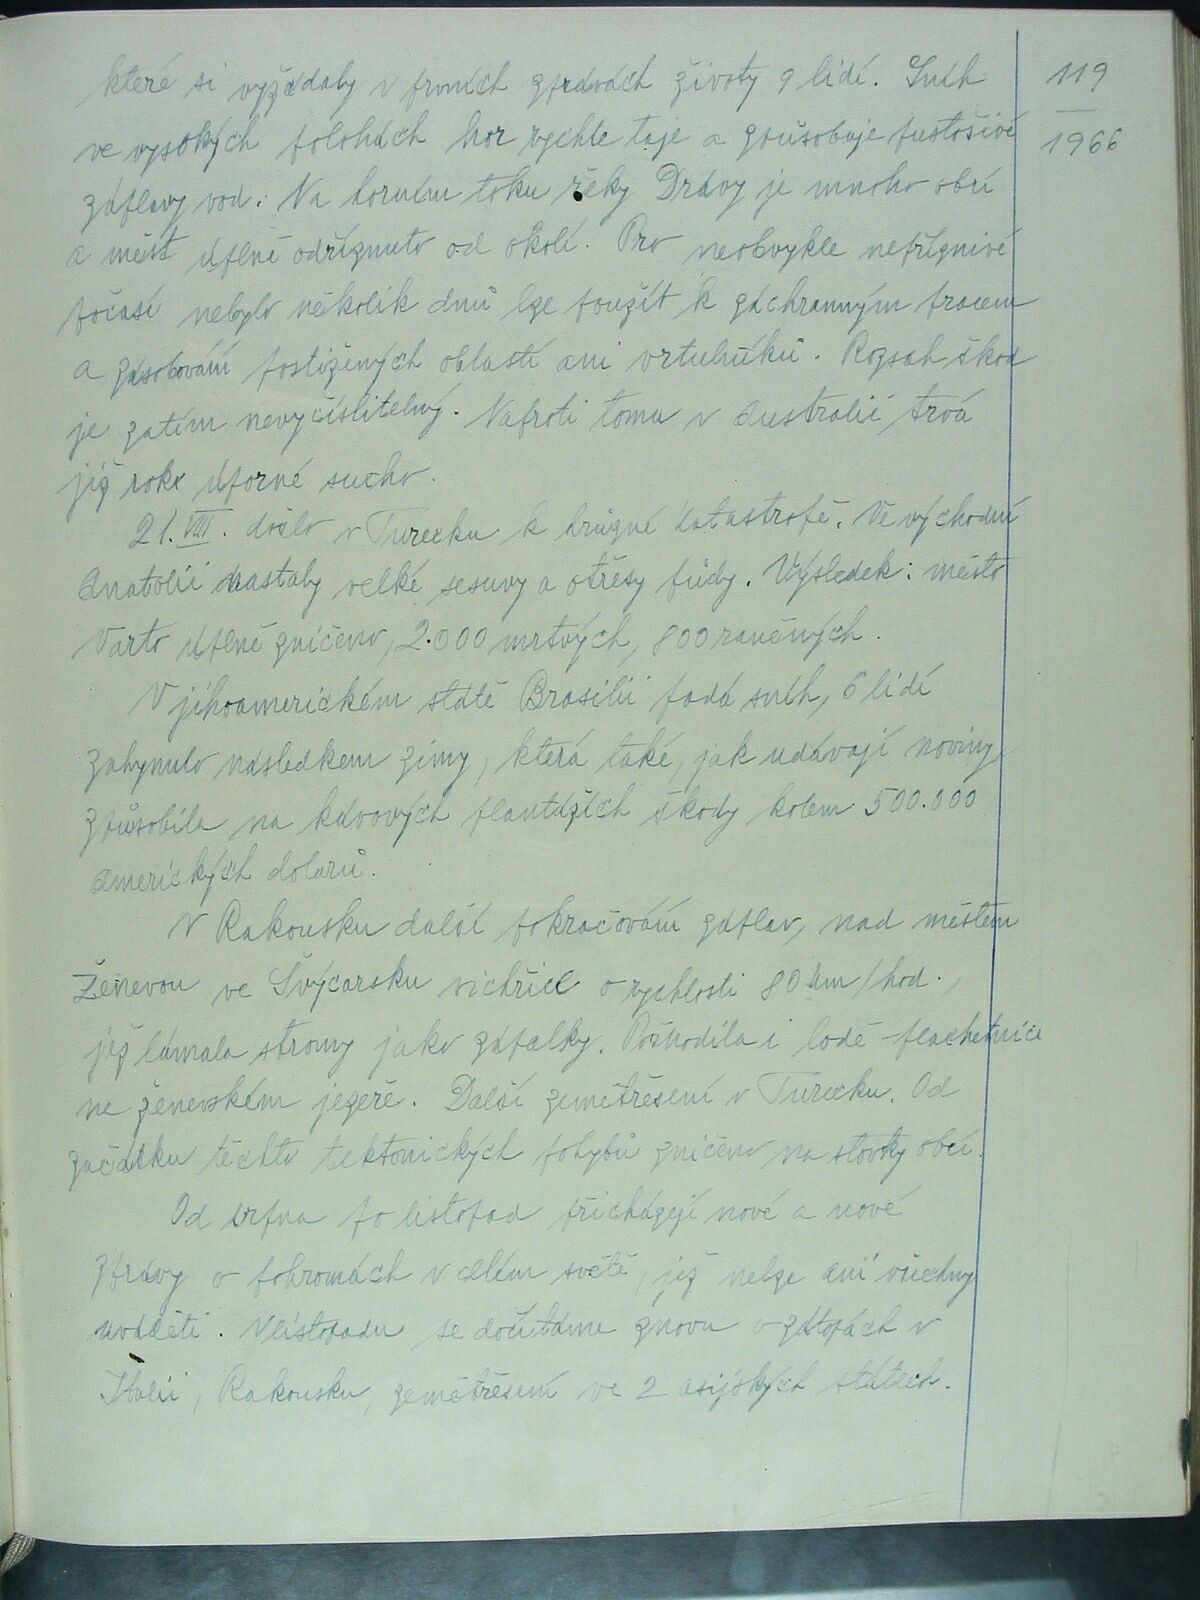 které si vyžádaly v prvních zprávách životy 9 lidí. Sníh
119
ve vysokých polohách hor rychle taje a způsobuje pustošivé
1966
záplavy vod. Na horním toku řeky Drávy je mnoho obcí
a měst úplně odříznuto od okolí. Pro neobvykle nepříznivé
počasí nebylo několik dnů lze použít k záchranným pracem
a zásobování postižených oblastí ani vrtulníků. Rozsah škod
je zatím nevyčíslitelný. Naproti tomu v Australii trvá
již roky úporné sucho.
21. VIII. došlo v Turecku k hrůzné katastrofě. Ve východní
Anatolii nastaly velké sesuvy a otřesy půdy. Výsledek: město
Varto úplně zničeno, 2.000 mrtvých, 800 raněných.
V jihoamerickém státě Brasilii padá sníh, 6 lidí
zahynulo následkem zimy, která také, jak udávají noviny
způsobila na kávových plantážích škody kolem 500.000
amerických dolarů.
V Rakousku další pokračování záplav, nad městem
Ženevou ve Švýcarsku vichřice o rychlosti 80 km/hod.,
jež lámala stromy jako zápalky. Poškodila i lodě-plachetnice
na ženevském jezeře. Další zemětřesení v Turecku. Od
začátku těchto tektonických pohybů zničeno na stovky obcí.
Od srpna po listopad přicházejí nové a nové
zprávy o pohromách v celém světě, jež nelze ani všechny
uváděti. V listopadu se dočítáme znovu o zátopách v
Italii, Rakousku, zemětřesení ve 2 asijských státech.